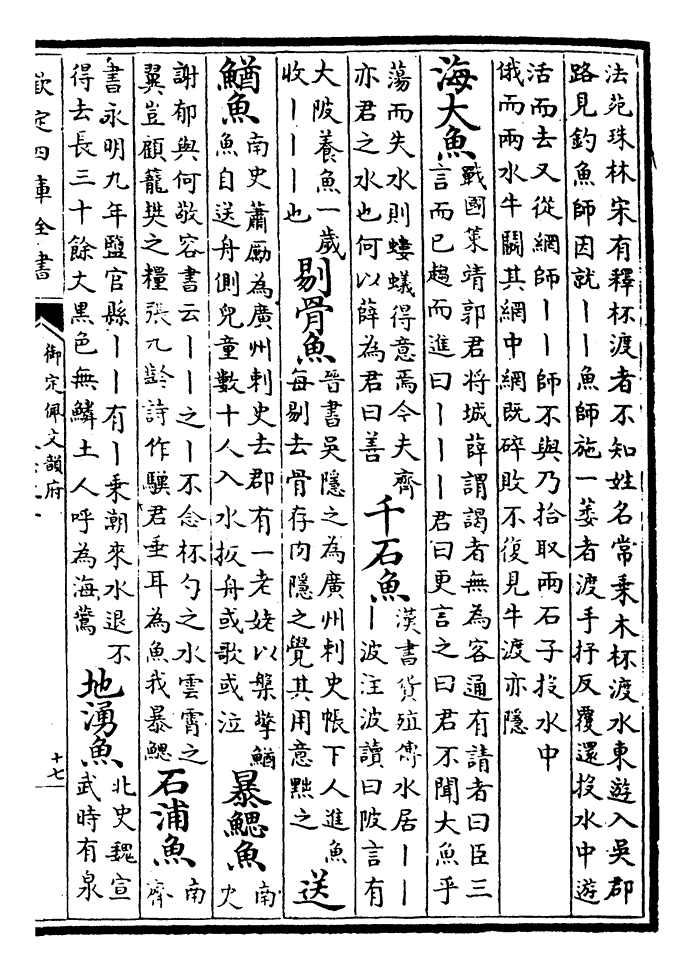 法苑珠林宋有釋杯渡者不知姓名常乗木杯渡水東遊入吳郡
路見釣魚師因就丨丨魚師施一萎者渡手抒反覆還投水中遊
活而去又從網師丨丨師不與乃拾取兩石子投水中
俄而兩水牛鬭其網中網既碎敗不復見牛渡亦隱
海大魚
戰國策靖郭君将城薛謂謁者無為客通有請者曰臣三
言而已趨而進曰丨丨丨君曰更言之曰君不聞大魚乎
蕩而失水則螻蟻得意焉今夫齊
亦君之水也何以薛為君曰善
千石魚
漢書貨殖傳水居丨丨
丨波注波讀曰陂言有
大陂養魚一歲
收丨丨丨也
剔骨魚
晉書吳隱之為廣州刺史帳下人進魚
每剔去骨存肉隱之覺其用意黜之
送
鰌魚
南史蕭勵為廣州刺史去郡有一老姥以槃擎鰌
魚自送舟側兒童數十人入水扳舟或歌或泣
暴鰓魚
南
史
謝郁與何敬容書云丨丨之丨不念杯勺之水雲霄之
翼豈顧籠樊之糧張九齡詩作驥君垂耳為魚我暴鰓
石浦魚
南
齊
書永明九年鹽官縣丨丨有丨乗潮來水退不
得去長三十餘丈黑色無鱗土人呼為海鷰
地湧魚
北史魏宣
武時有泉
欽定四庫全書
御定佩文韻府
十七